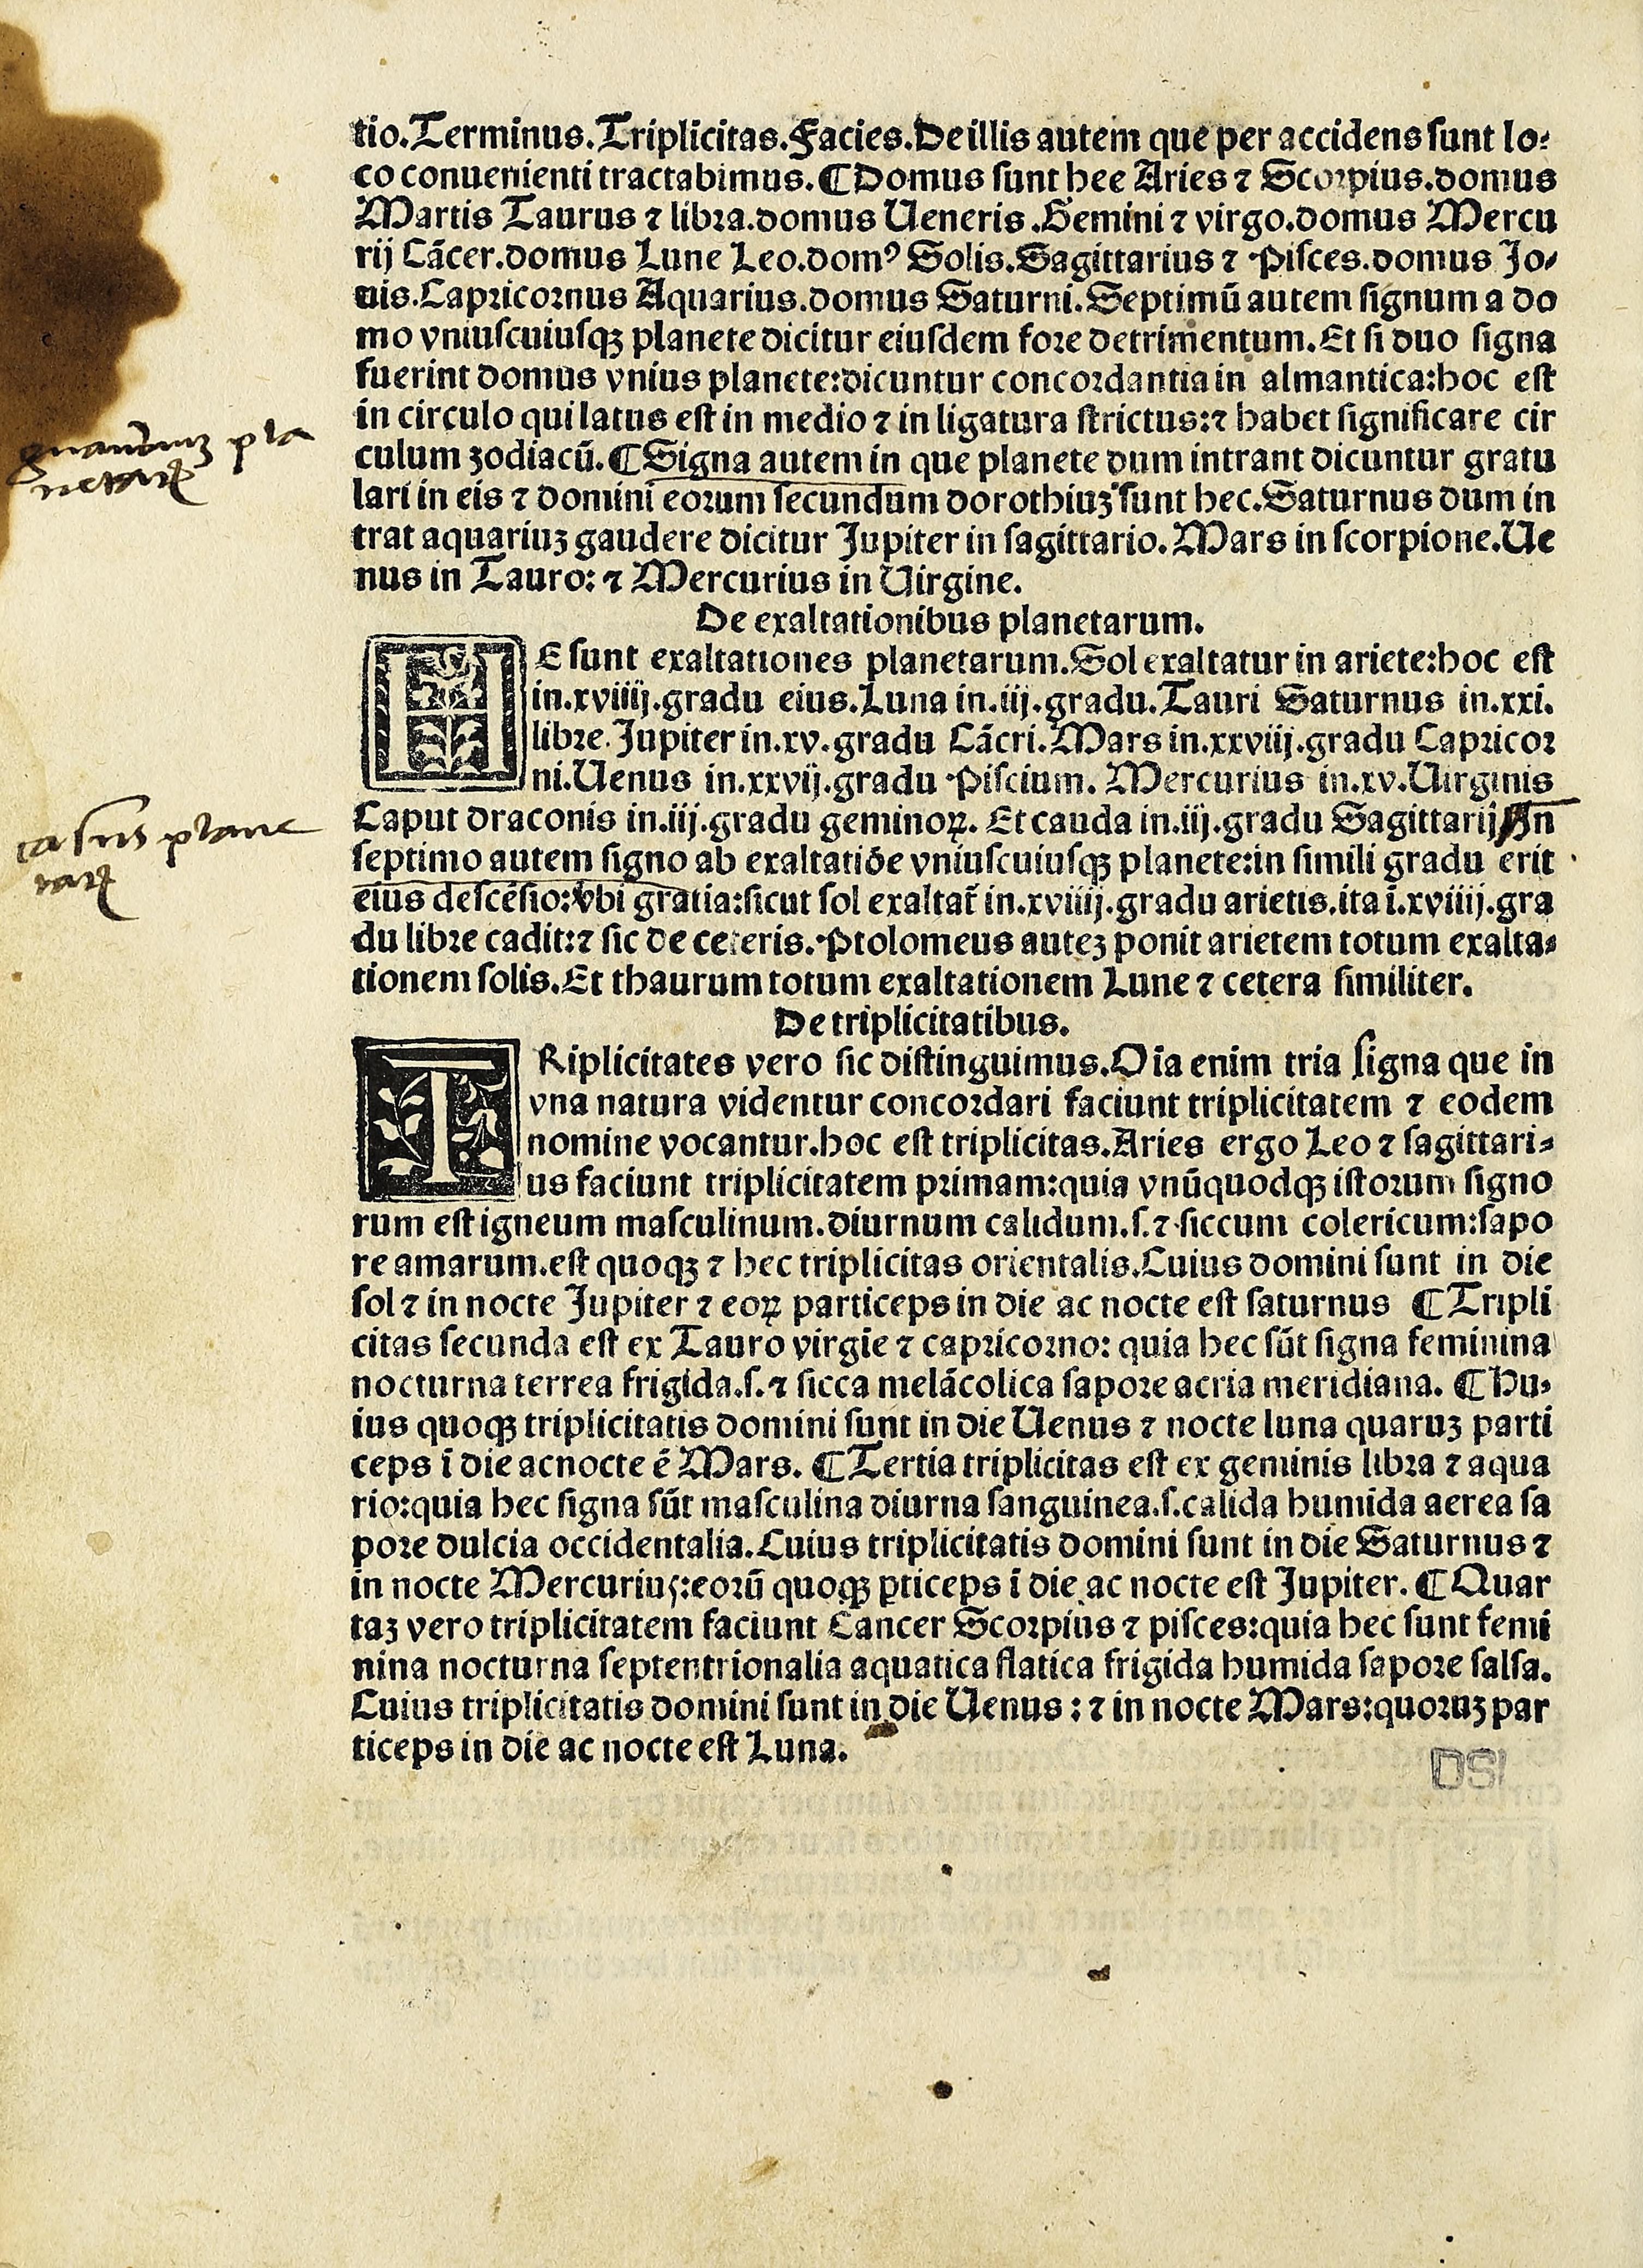 tio.Terminus.Triplicitas.Facies.De illis autem que per accidens sunt lo⸗
co conuenienti tractabimus.¶Domus sunt hee Aries ⁊ Scorpius.domus
Martis Taurus ⁊ libra.domus Ueneris.Gemini ⁊ virgo.domus Mercu
rij Cãcer.domus Lune Leo.domꝰ Solis.Sagittarius ⁊ Pisces.domus Jo⸗
uis.Capricornus Aquarius.domus Saturni.Septimũ autem signum a do
mo vniuscuiusqꝫ planete dicitur eiusdem fore detrimentum.Et si duo signa
fuerint domus vnius planete:dicuntur concordantia in almantica:hoc est
in circulo qui latus est in medio ⁊ in ligatura strictus:⁊ habet significare cir
culum zodiacũ.¶Signa autem in que planete dum intrant dicuntur gratu
lari in eis ⁊ domini eorum secundum dorothiuꝫ sunt hec.Saturnus dum in
trat aquariuꝫ gaudere dicitur Jupiter in sagittario.Mars in scorpione.Ue
nus in Tauro:⁊ Mercurius in Uirgine.
gaudiuꝫ pla
netaꝝ
De exaltationibus planetarum.
HE sunt exaltationes planetarum.Sol exaltatur in ariete:hoc est
in.xviiij.gradu eius.Luna in.iij.gradu.Tauri Saturnus in.xxi.
libre.Jupiter in.xv.gradu Cãcri.Mars in.xxviij.gradu Capricor
ni.Uenus in.xxvij.gradu Piscium. Mercurius in.xv.Uirginis
Caput draconis in.iij.gradu geminoꝝ. Et cauda in.iij.gradu Sagittarij In
septimo autem signo ab exaltatiõe vniuscuiusqꝫ planete:in simili gradu erit
eius descẽsio:vbi gratia:sicut sol exaltat̃ in.xviiij.gradu arietis.ita ĩ.xviiij.gra
du libre cadit:⁊ sic de ceteris.Ptolomeus auteꝫ ponit arietem totum exalta⸗
tionem solis.Et thaurum totum exaltationem Lune ⁊ cetera similiter.
casus plane
taꝝ
De triplicitatibus.
TRiplicitates vero sic distinguimus.Oia enim tria signa que in
vna natura videntur concordari faciunt triplicitatem ⁊ eodem
nomine vocantur.hoc est triplicitas.Aries ergo Leo ⁊ sagittari⸗
us faciunt triplicitatem primam:quia vnũquodqꝫ istorum signo
rum est igneum masculinum.diurnum calidum.s.⁊ siccum colericum:sapo
re amarum.est quoqꝫ ⁊ hec triplicitas orientalis.Cuius domini sunt in die
sol ⁊ in nocte Jupiter ⁊ eoꝝ particeps in die ac nocte est saturnus ¶Tripli
citas secunda est ex Tauro virgie ⁊ capricorno: quia hec sũt signa feminina
nocturna terrea frigida.s.⁊ sicca melãcolica sapore acria meridiana. ¶Hu⸗
ius quoqꝫ triplicitatis domini sunt in die Uenus ⁊ nocte luna quaruꝫ parti
ceps ĩ die acnocte ẽ Mars. ¶Tertia triplicitas est ex geminis libra ⁊ aqua
rio:quia hec signa sũt masculina diurna sanguinea.s.calida humida aerea sa
pore dulcia occidentalia.Cuius triplicitatis domini sunt in die Saturnus ⁊
in nocte Mercurius:eorũ quoqꝫ ꝑticeps ĩ die ac nocte est Jupiter. ¶Quar
taꝫ vero triplicitatem faciunt Cancer Scorpius ⁊ pisces:quia hec sunt femi
nina nocturna septentrionalia aquatica flatica frigida humida sapore salsa.
Cuius triplicitatis domini sunt in die Uenus:⁊ in nocte Mars:quoruꝫ par
ticeps in die ac nocte est Luna.
DSI